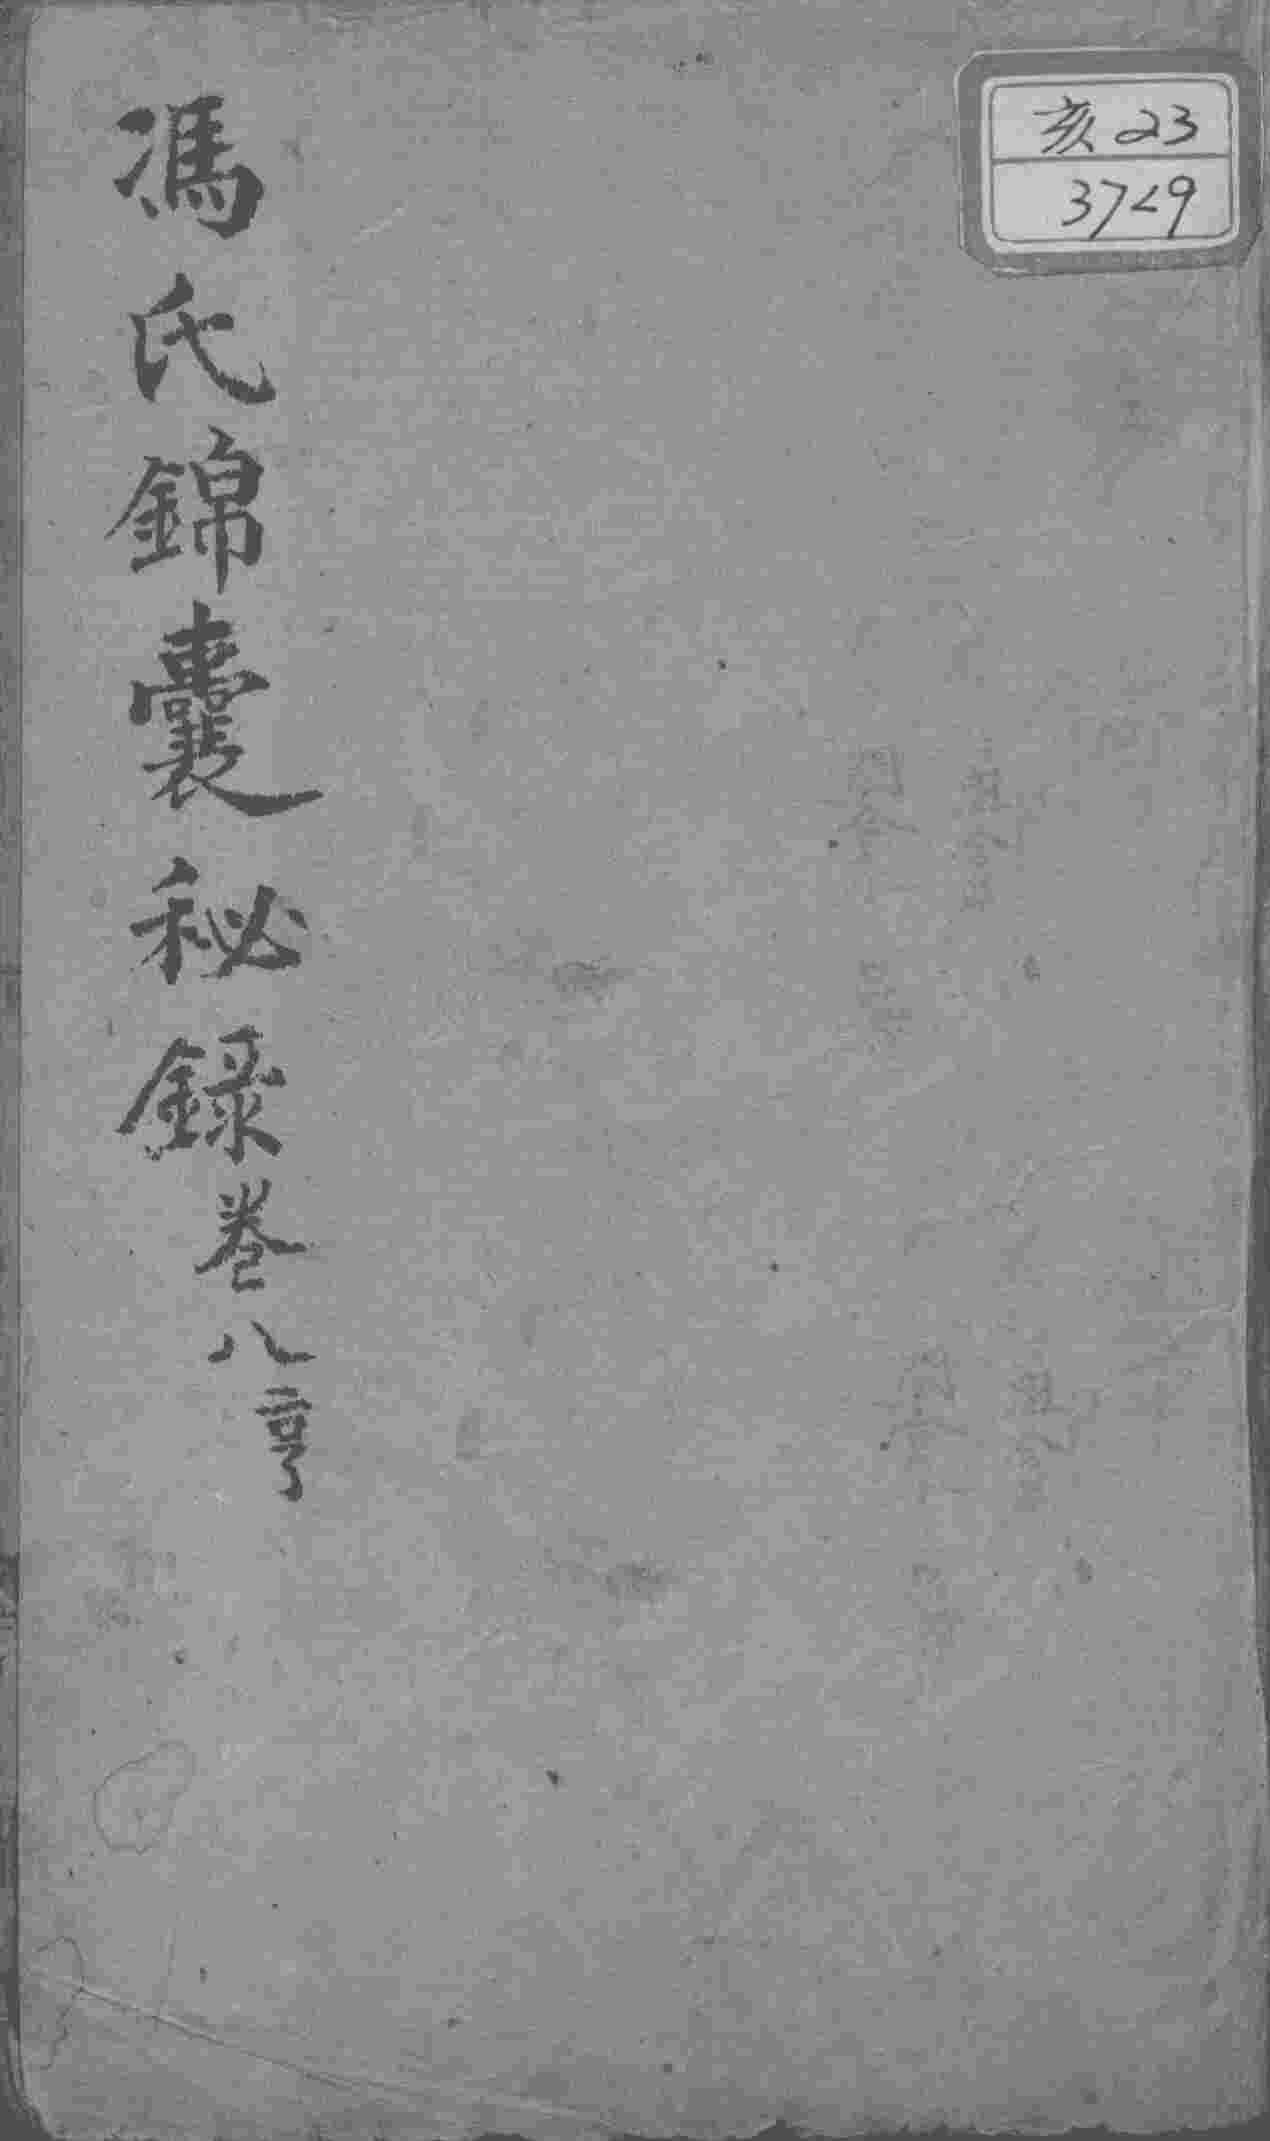 馮氏錦囊秘錄卷八亨
亥23
3729